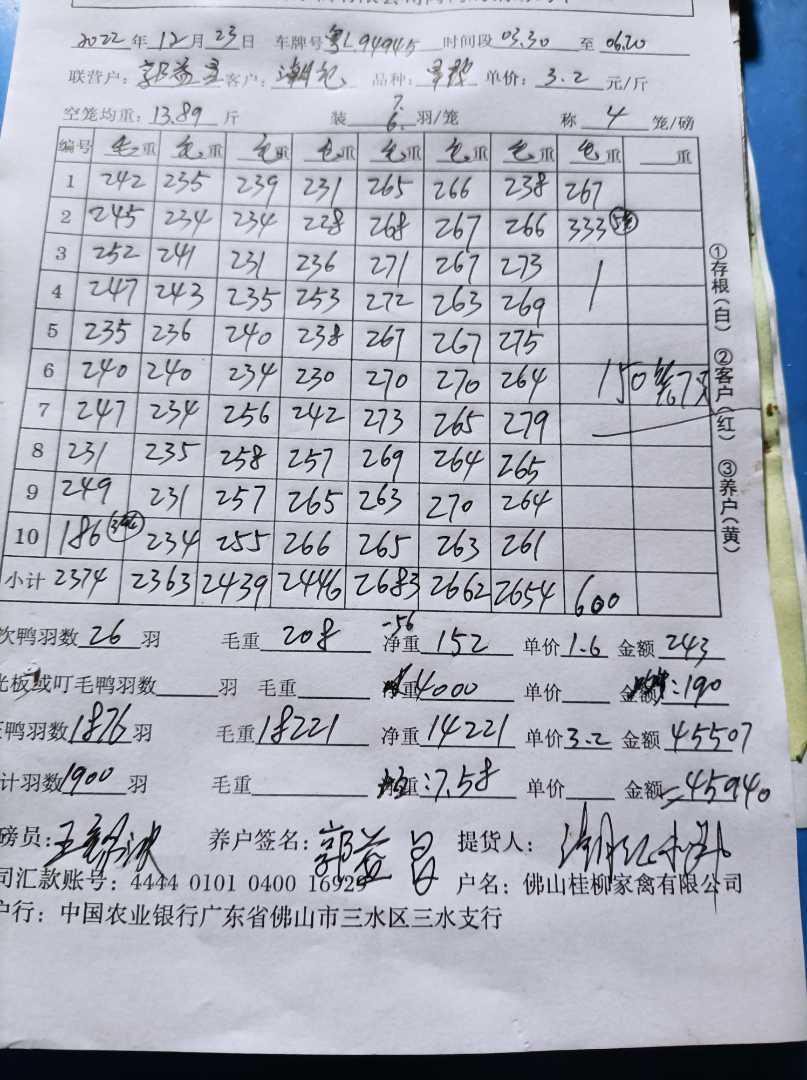 2022 年 12 月 23 日 车牌号 粤L94945 时间段 03.30 至 06.20
联营户: 客户: 品种: 单价: 3.2 元/斤
空笼均重: 13.89 斤 装 7. 6. 羽/笼 称 4 笼/磅
编号 毛重 毛重 毛重 毛重 毛重 毛重 毛重 毛重 重
1 242 235 239 231 265 266 238 267
2 245 234 234 228 268 267 266 333
3 252 241 231 236 271 267 273
4 247 243 235 253 272 263 269
5 235 236 240 238 267 267 275
6 240 240 234 230 270 270 264 150笼7只
7 247 234 256 242 273 265 279
8 231 235 258 257 269 264 265
9 249 231 257 265 263 270 264
10 186 234 255 266 265 263 261
小计 2374 2363 2439 2446 2683 2662 2654 600
①存根(白) ②客户(红) ③养户(黄)
次鸭羽数 26 羽 毛重 208 -56 净重 152 单价 1.6 金额 243
光板或叮毛鸭羽数 羽 毛重 净重 4000 单价 金额:190
正鸭羽数 1876 羽 毛重 18221 净重 14221 单价 3.2 金额 45507
计羽数 1900 羽 毛重 :7.58 单价 金额 =45940
磅员: 养户签名: 提货人:
司汇款账号: 4444 0101 0400 16925 户名: 佛山桂柳家禽有限公司
户行: 中国农业银行广东省佛山市三水区三水支行